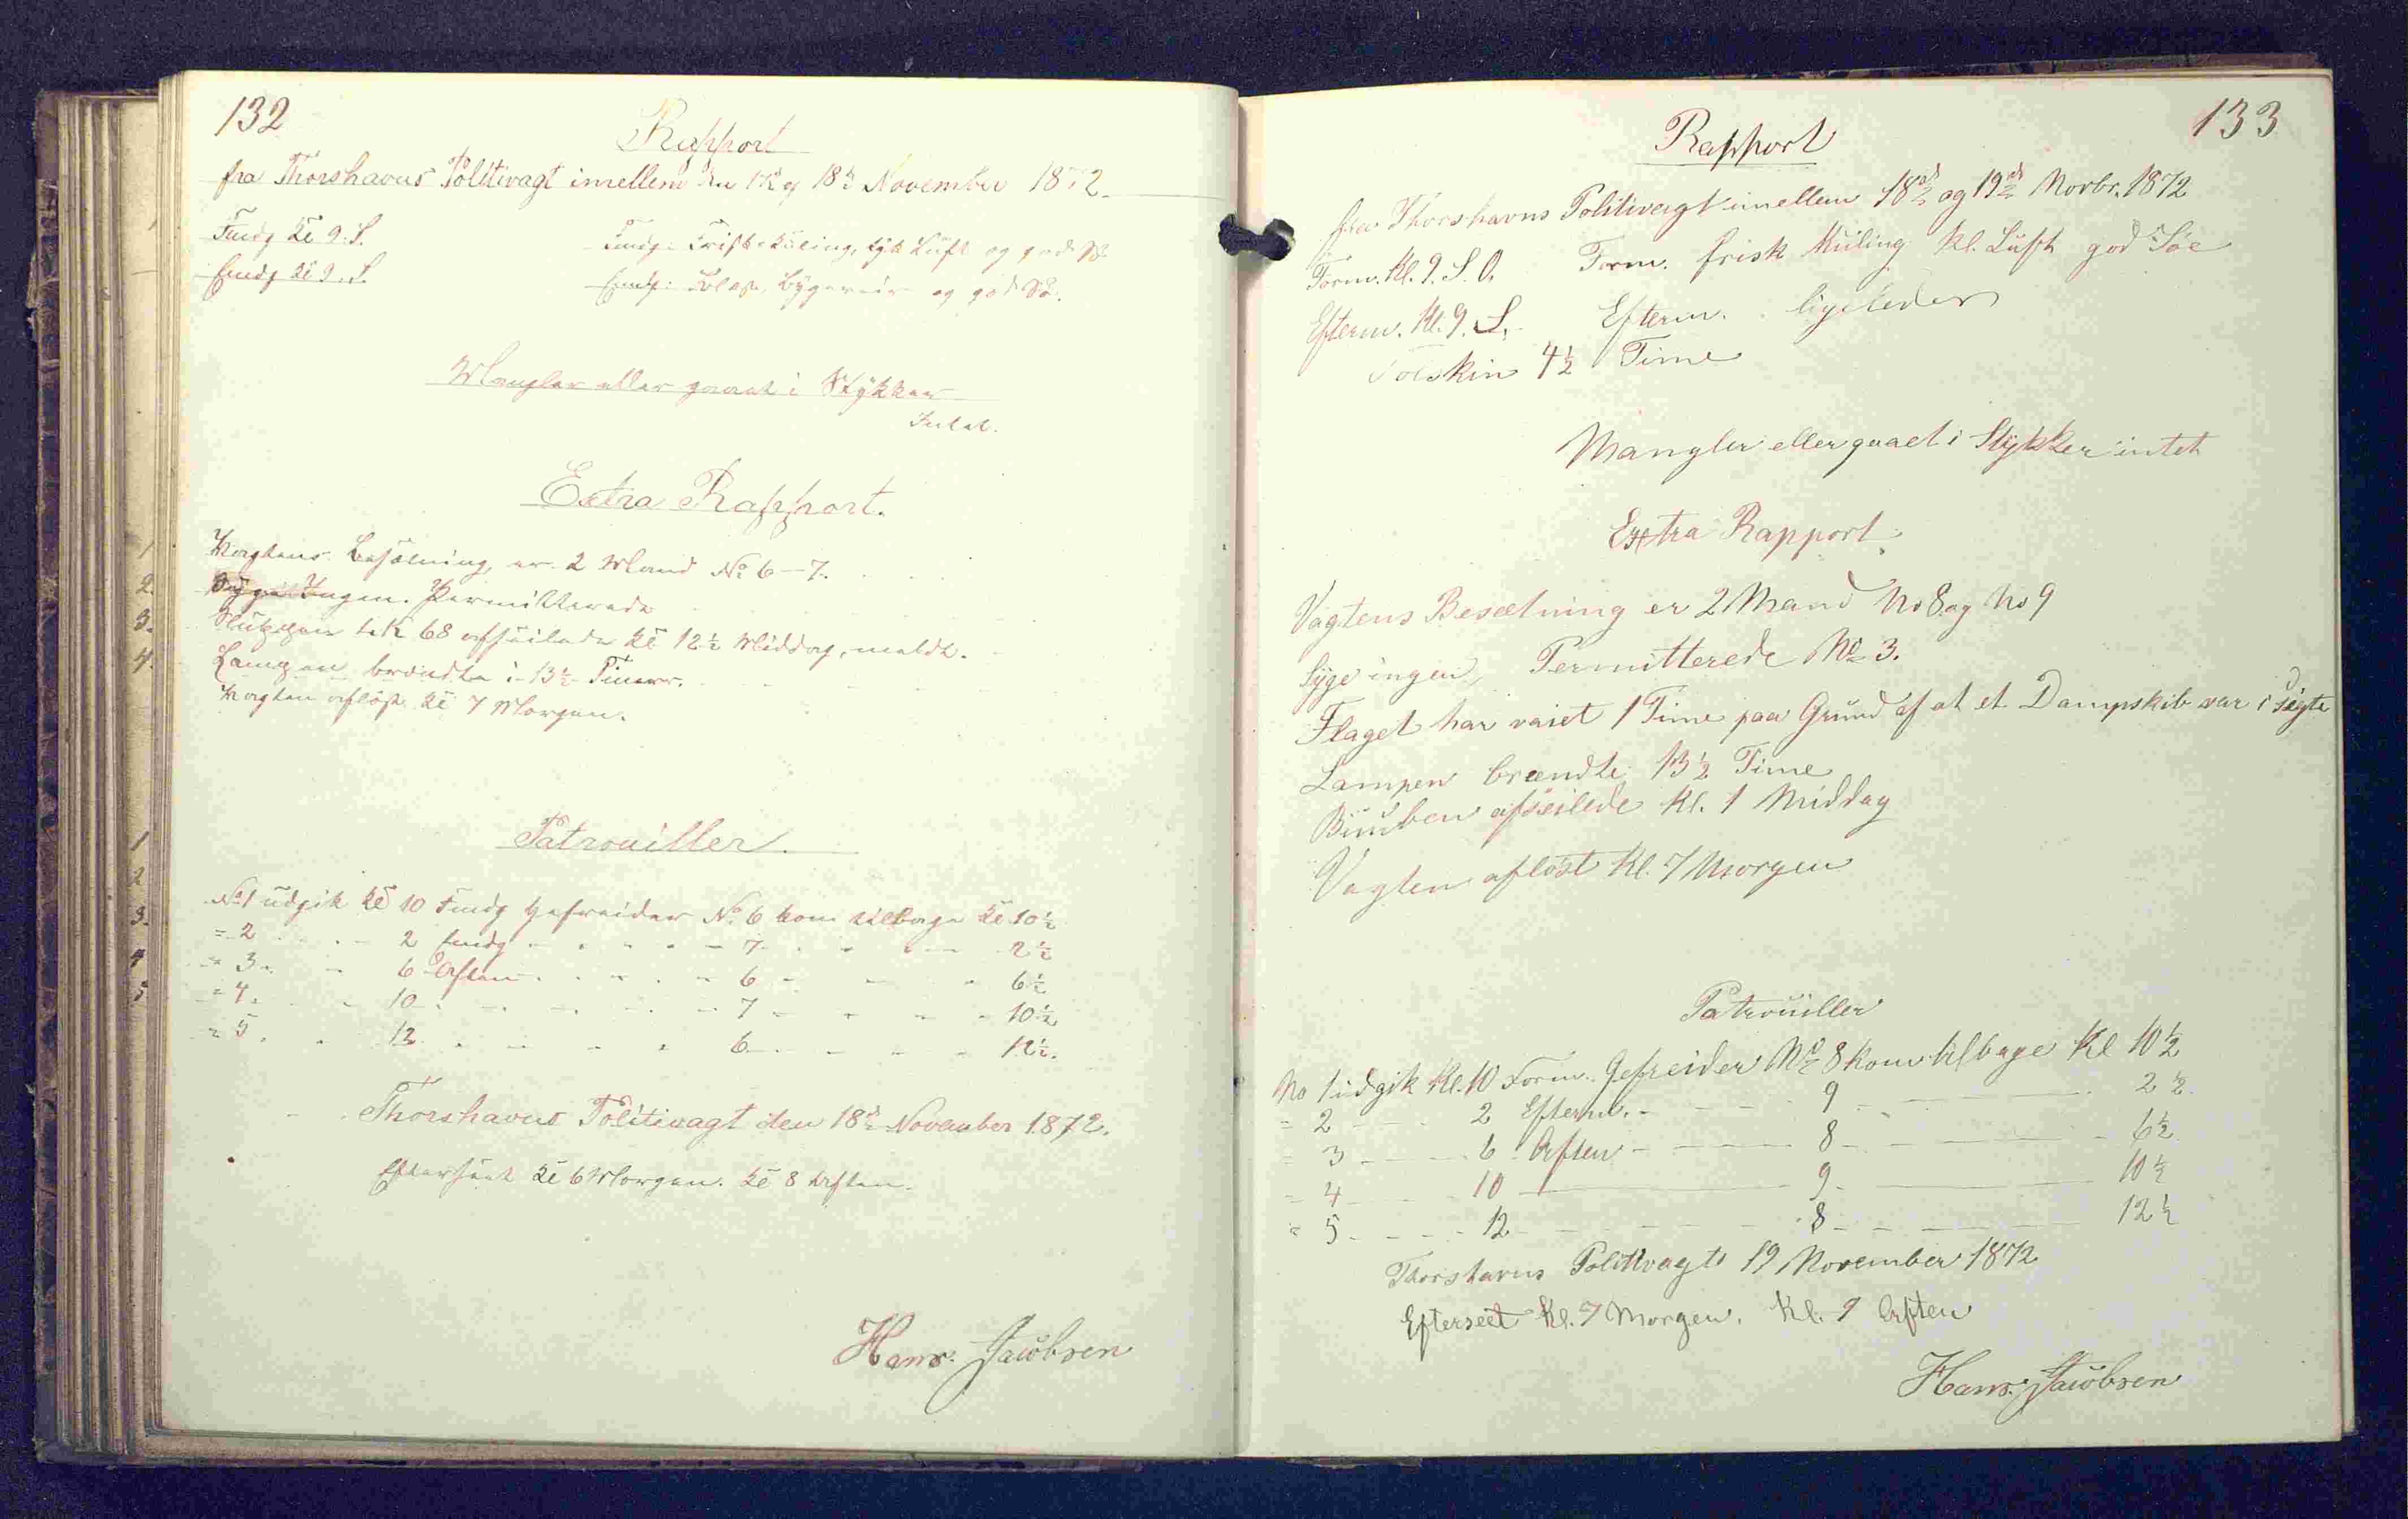 132
Rapport
fra Thorshavns Politivagt imellem den 17d og 18d November 1872.
Fmdg Kl 9. S.
Fmdg: Frisk Kuling, tyk Luft og god Sø
Emdg Kl 9. S.
Emdg: Bygeveir og god Sø.
Mangler eller gaaet i Stykker
Intet.
Extra Rapport.
Vagtens Besætning er 2 Mand No 6-7.
Syge Ingen. Permitterede
Slupen 68 afseilede Kl 12½ Middag, meldt.
Lampen brændte i 13½ Timer.
Vagten afløst Kl 7 Morgen.
Patrouiller.
No 1 udgik Kl 10 Fmdg Gefreider No 6 kom tilbage Kl 10½
= 2 - - 2 Emdg - - - 7 - - - 2½
= 3 - - 6 Aften - - - 6 - - - 6½
= 4 - - 10 - - - 7 - - - 10½
= 5 - - 12 - - - 6 - - - 12½.
Thorshavns Politivagt den 18d November 1872.
Efterseet Kl 6 Morgen. Kl 8 Aften.
Hans Jacobsen
133
Rapport
fra Thorshavns Politivagt imellem 18de og 19de Novbr. 1872
Form. Kl. 9. S. O. Form. frisk Kuling Kl. Luft god Søe
Efterm. Kl. 9. S. Efterm. ligeledes
Solskin 4½ Time
Mangler eller gaaet i Stykker intet
Extra Rapport.
Vagtens Besætning er 2 Mand No 8 og No 9
Syge ingen, Permitterede No 3.
Flaget har vaiet 1 Time paa Grund af at et Dampskib var i Sigte
Lampen brændte 13½ Time
afseilede Kl. 1 Middag
Vagten afløst Kl. 7 Morgen
Patrouiller
No 1 udgik Kl. 10 Form. Gefreider No 8 kom tilbage Kl 10½
= 2 - - 2 Efterm. - - - 9 - - - 2½
= 3 - - 6 Aften - - - 8 - - - 6½
= 4 - - 10 - - - 9 - - - 10½
= 5 - - 12 - - - 8 - - - 12½
Thorshavns Politivagt 19 November 1872
Efterseet Kl. 7 Morgen. Kl. 9 Aften
Hans Jacobsen